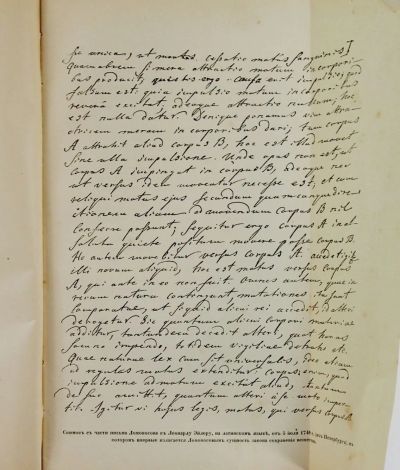 sit unica, ut mortis cessatio motus sanguinis
Quamobrem si mera attractio motum in corpori-
bus producit, quietis ergo causa erit impulsio; quod
falsum est, quia impulsio motum in corporibus
revera excitat, adeoque attractio hoc
est nulla datur. Denique ponamus vim attra-
ctricem meram in corporibus dari; tum corpus
A attrahit aliud corpus B, hoc est illud movet
sine ulla impulsione. Unde opus non est ut
corpus A impingat in corpus B, adeoque nec
ut versus idem moveatur necesse est, et cum
reliqui motus ejus secundum quamcunque dire-
ctionem alium ad movendum corpus B nil
conferre possunt; sequitur ergo corpus A in ab-
soluta quiete positum movere posse corpus B.
Hoc autem movebitur versus corpus A. accedet igit.
illi novum aliquid, hoc est motus versus corpus
A, qui ante in eo non fuit. Omnes autem, quae in
rerum natura contingunt, mutationes ita sunt
comparatae, ut si quid alicui rei accedit, id alteri
derogetur. Sic quantum alicui corpori materiae
additur, tantundem decedit alteri, quot horas
somno impendo, totidem vigiliae detraho etc.
Quae naturae lex cum sit universalis, ideo etiam
ad regulas motus extenditur: corpus enim, quod
impulsione ad motum excitat aliud, tantum
de suo amittit, quantum alteri a se moto imper-
tit. Igitur vi hujus legis, motus, qui versus corpus B
Снимокъ съ части письма Ломоносова къ Леонарду Эйлеру, на латинскомъ языкѣ, отъ 5 іюля 1748 изъ Петербурга, въ
которомъ впервые излагается Ломоносовымъ сущность закона сохраненія